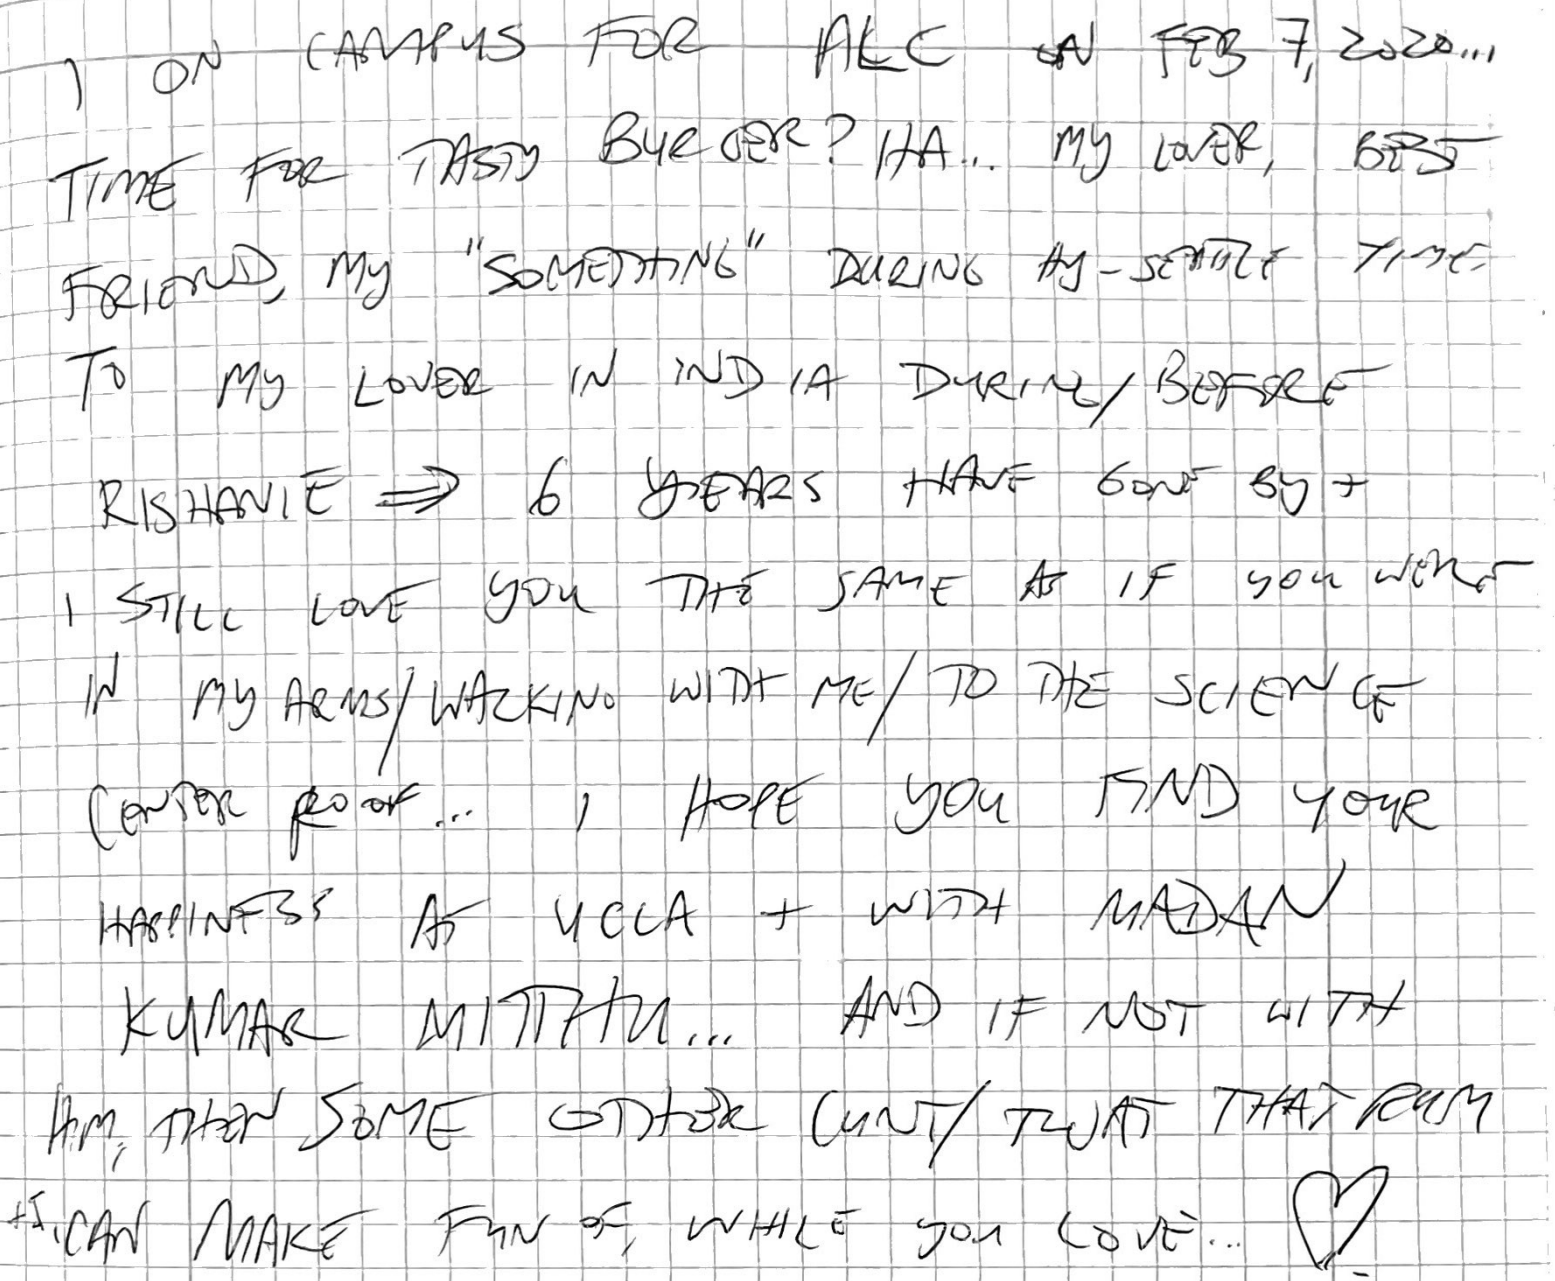 I ON CAMPUS FOR ALC ON FEB 7, 2020...
TIME FOR TASTY BURGER? HA... MY LOVER, BEST
FRIEND, MY "SOMETHING" DURING MY-SEATTLE TIME.
TO MY LOVER IN INDIA DURING/BEFORE
RISHANIE ⇒ 6 YEARS HAVE GONE BY +
I STILL LOVE YOU THE SAME AS IF YOU WERE
IN MY ARMS/WALKING WITH ME/TO THE SCIENCE
CENTER ROOF... I HOPE YOU FIND YOUR
HAPPINESS AT UCLA + WITH MADAN
KUMAR MITTHU... AND IF NOT WITH
HIM, THEN SOME OTHER CUNT/TWAT THAT
+I CAN MAKE FUN OF, WHILE YOU LOVE... ♡